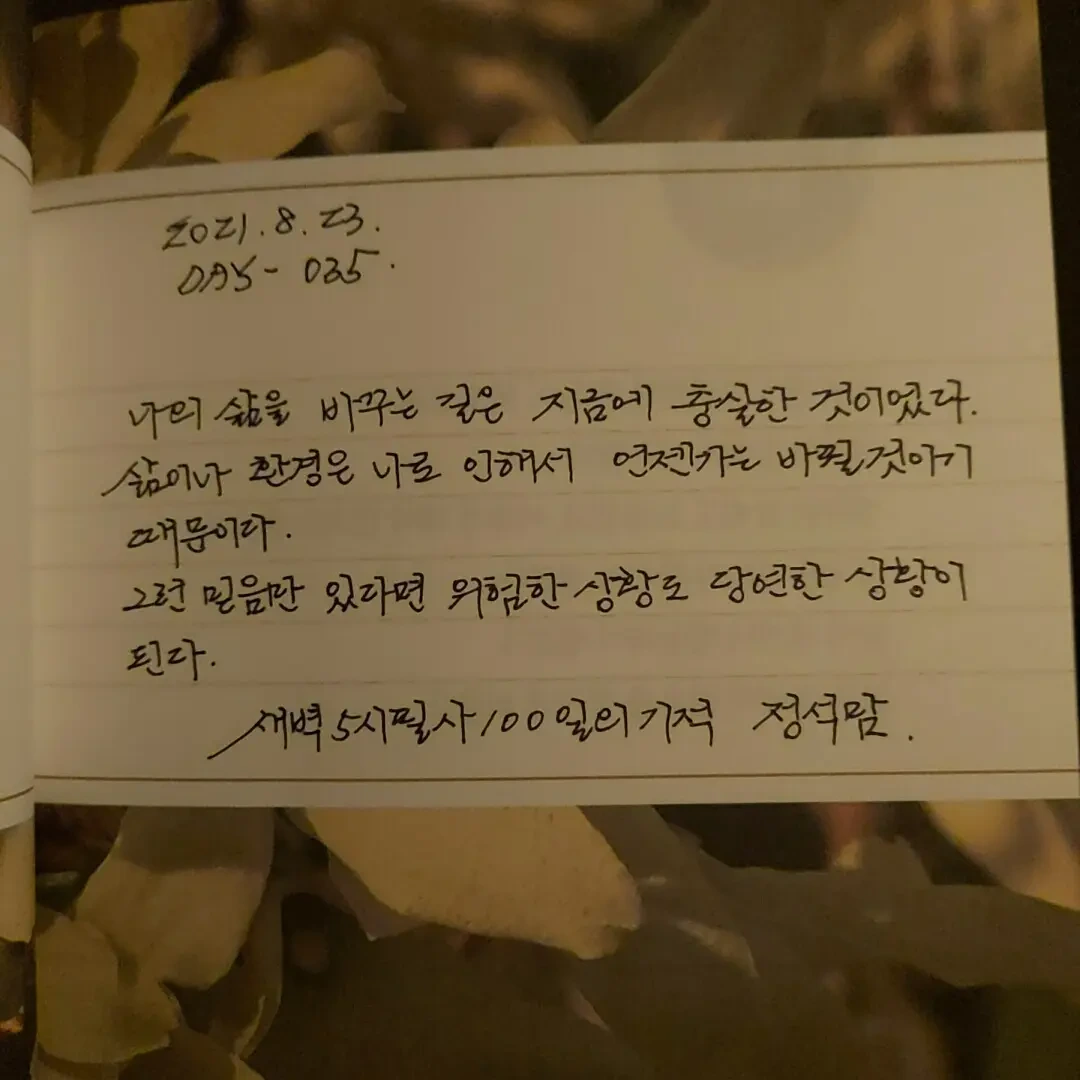 2021.8.23.
DAY- 035.
나의 삶을 바꾸는 길은 지금에 충실한 것이었다.
삶이나 환경은 나로 인해서 언젠가는 바뀔것이기
때문이다.
그런 믿음만 있다면 위험한 상황도 당연한 상황이
된다.
새벽5시필사100일의기적 정석맘.